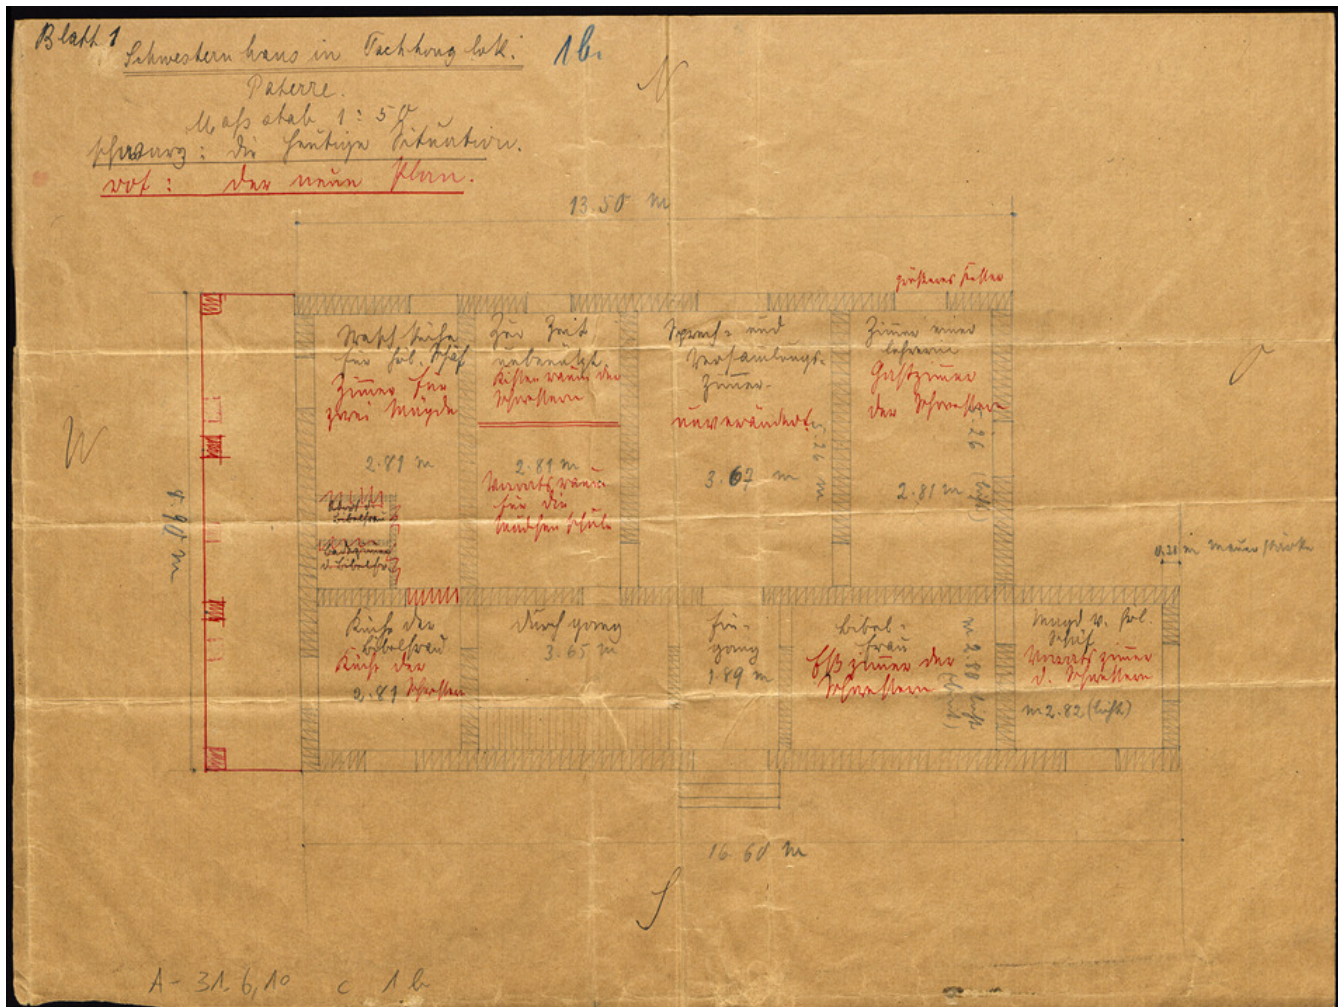 Blatt 1
Schwesternhaus in Tschhonglok.
1b.
N
Paterre.
Massstab 1:50
schwarz: die heutige Situation.
rot: der neue Plan.
13.50 m
grösseres Fenster
Waschküche
für Höl. Schaf
Zimmer für
zwei Mägde
2.81 m
Zur Zeit
unbenützt.
Kistenraum der
Schwestern
2.81 m
Vorratsraum
für die
Mädchenschule
Sprech- und
Versamlungs-
Zimmer.
unverändert.
3.67 m
Zimmer einer
Lehrerin
Gastzimmer
der Schwestern
2.81 m
W
O
8.90 m
Bibelfrau
Badezimmer
d. Bibelfrau
m Mauerstärke
Küche der
Bibelfrau
Küche der
Schwestern
2.81
Durchgang
3.65 m
Ein-
gang
1.89 m
Bibel-
frau
Esszimmer der
Schwestern
m 2.80 licht
(breit)
Magd v. Höl.
Schaf
Vorratszimmer
d. Schwestern
m 2.82 (licht)
16.60 m
S
A-31.6,10 c 1b